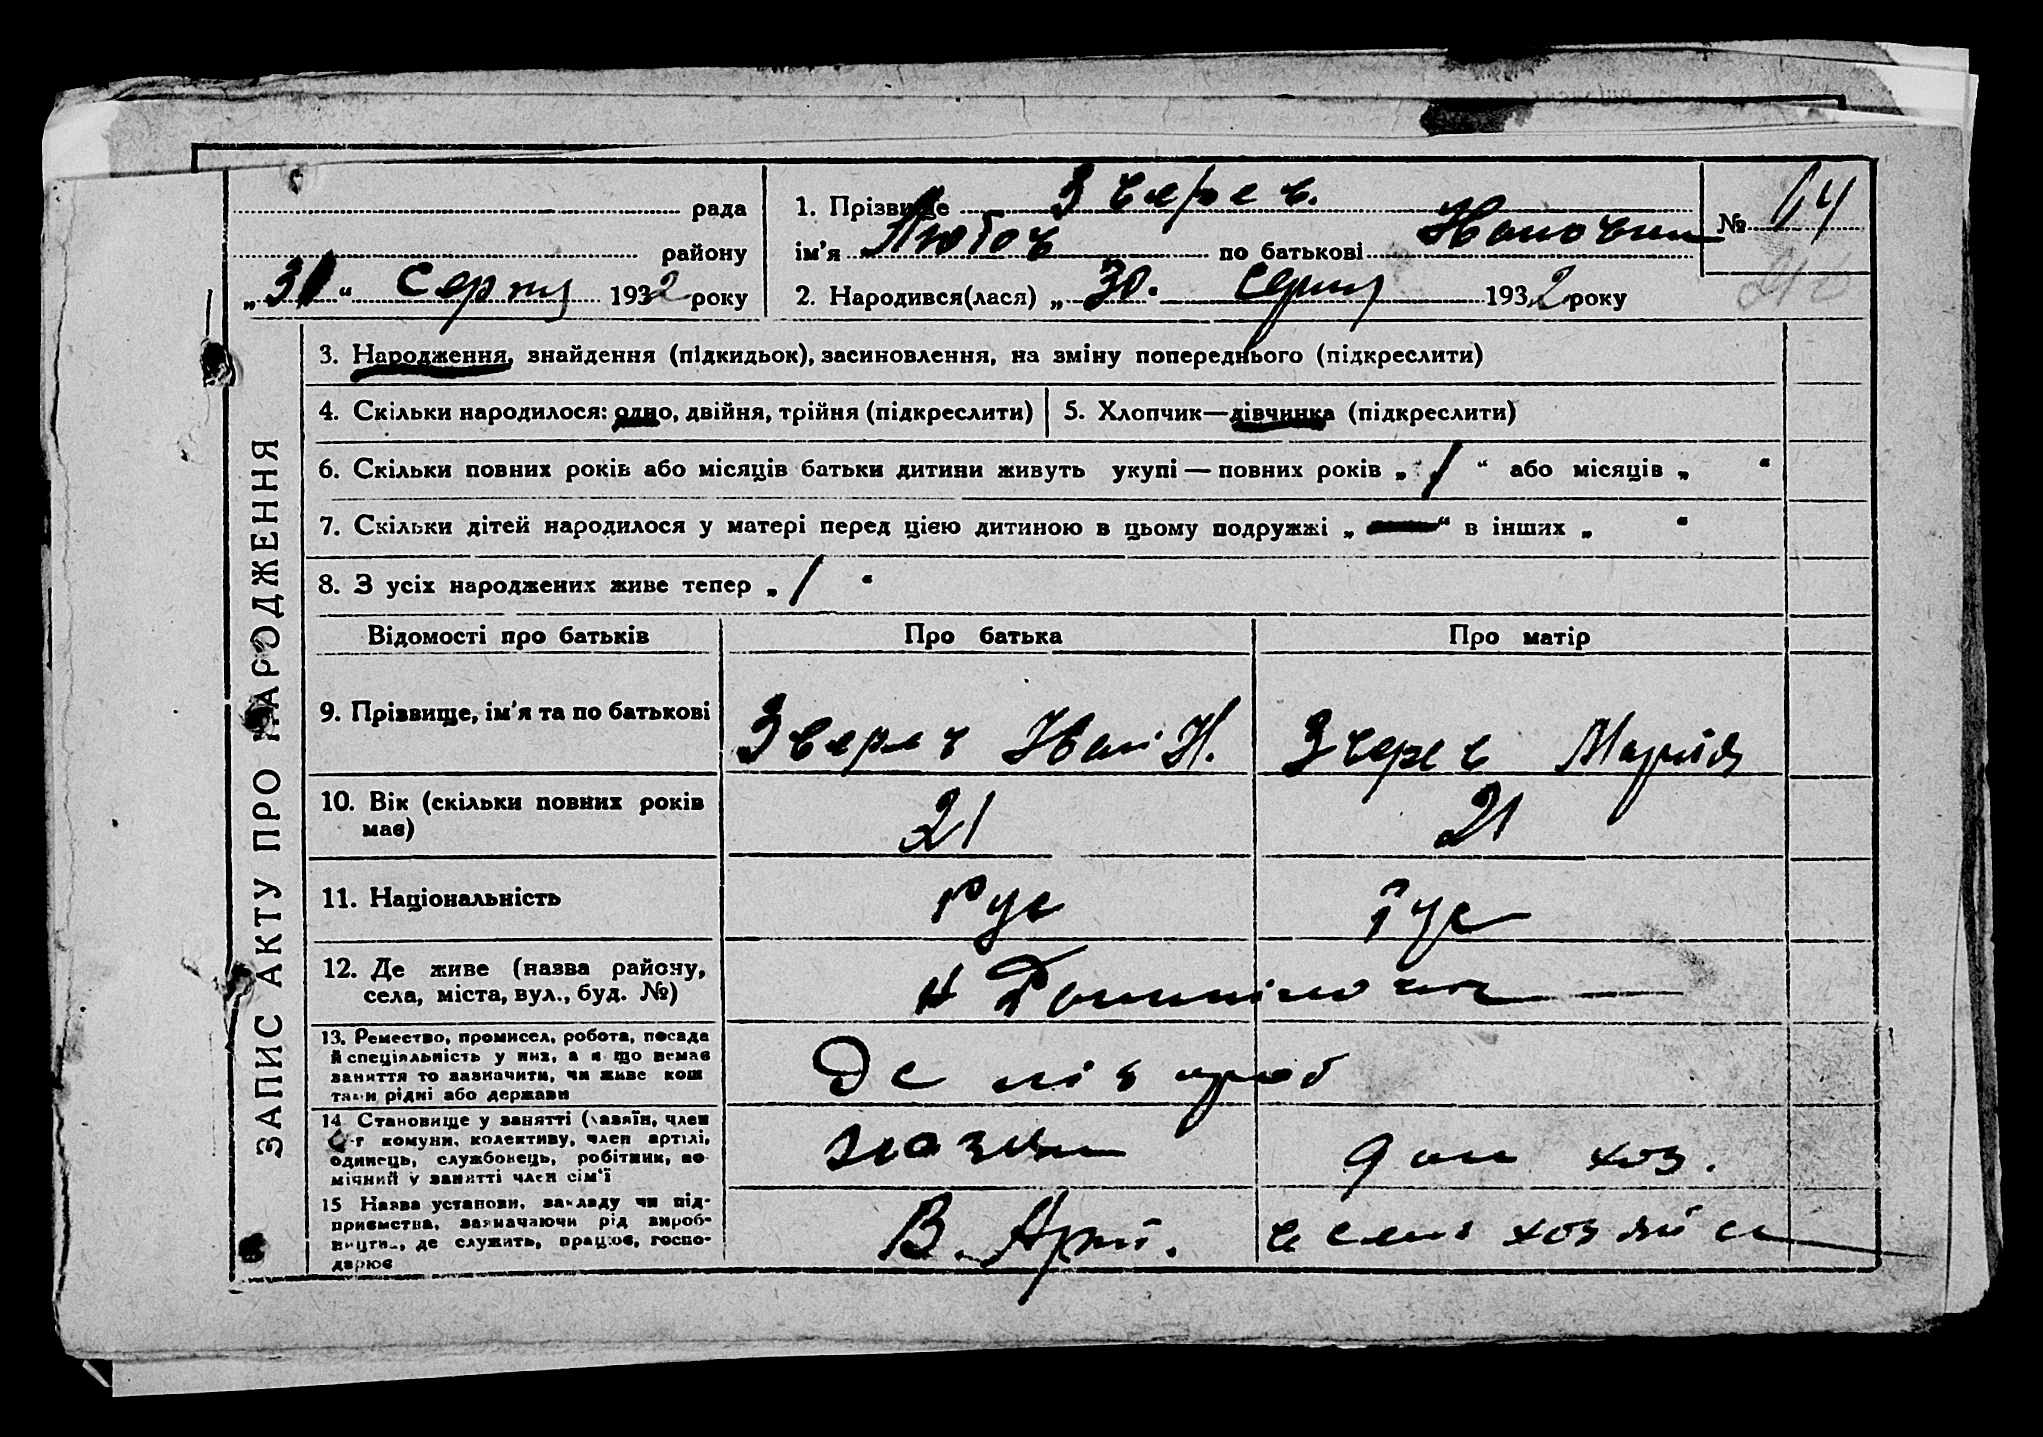 рада
району
„31“ серпня 1932 року
1. Прізвище Зверев.
ім'я Любов по батькові Ивановна
№ 64
2. Народився(лася) „30. серпня 1932 року
ЗАПИС АКТУ ПРО НАРОДЖЕННЯ
3. Народження, знайдення (підкидьок), засиновлення, на зміну попереднього (підкреслити)
4. Скільки народилося: одно, двійня, трійня (підкреслити)
5. Хлопчик—дівчинка (підкреслити)
6. Скільки повних років або місяців батьки дитини живуть укупі — повних років „ 1 “ або місяців „ “
7. Скільки дітей народилося у матері перед цією дитиною в цьому подружжі „ — “ в інших „ “
8. З усіх народжених живе тепер „ 1 “
Відомості про батьків Про батька Про матір
9. Прізвище, ім'я та по батькові Зверев Иван И. Зверев Мария
10. Вік (скільки повних років
має) 21 21
11. Національність Рус Рус
12. Де живе (назва району,
села, міста, вул., буд. №)
13. Ремество, промисел, робота, посада
й спеціяльність у них, а як що немає
заняття то зазначити, чи живе кош
тами рідні або держави
14 Становище у занятті (хазяїн, член
с-г комуни, колективу, член артілі,
одинець, службовець, робітник, по-
мічний у занятті член сім'ї
дом хоз.
15 Назва установи, закладу чи під-
приємства, зазначаючи рід вироб-
ництва, де служить, працює, госпо-
дарює
В. Арт.